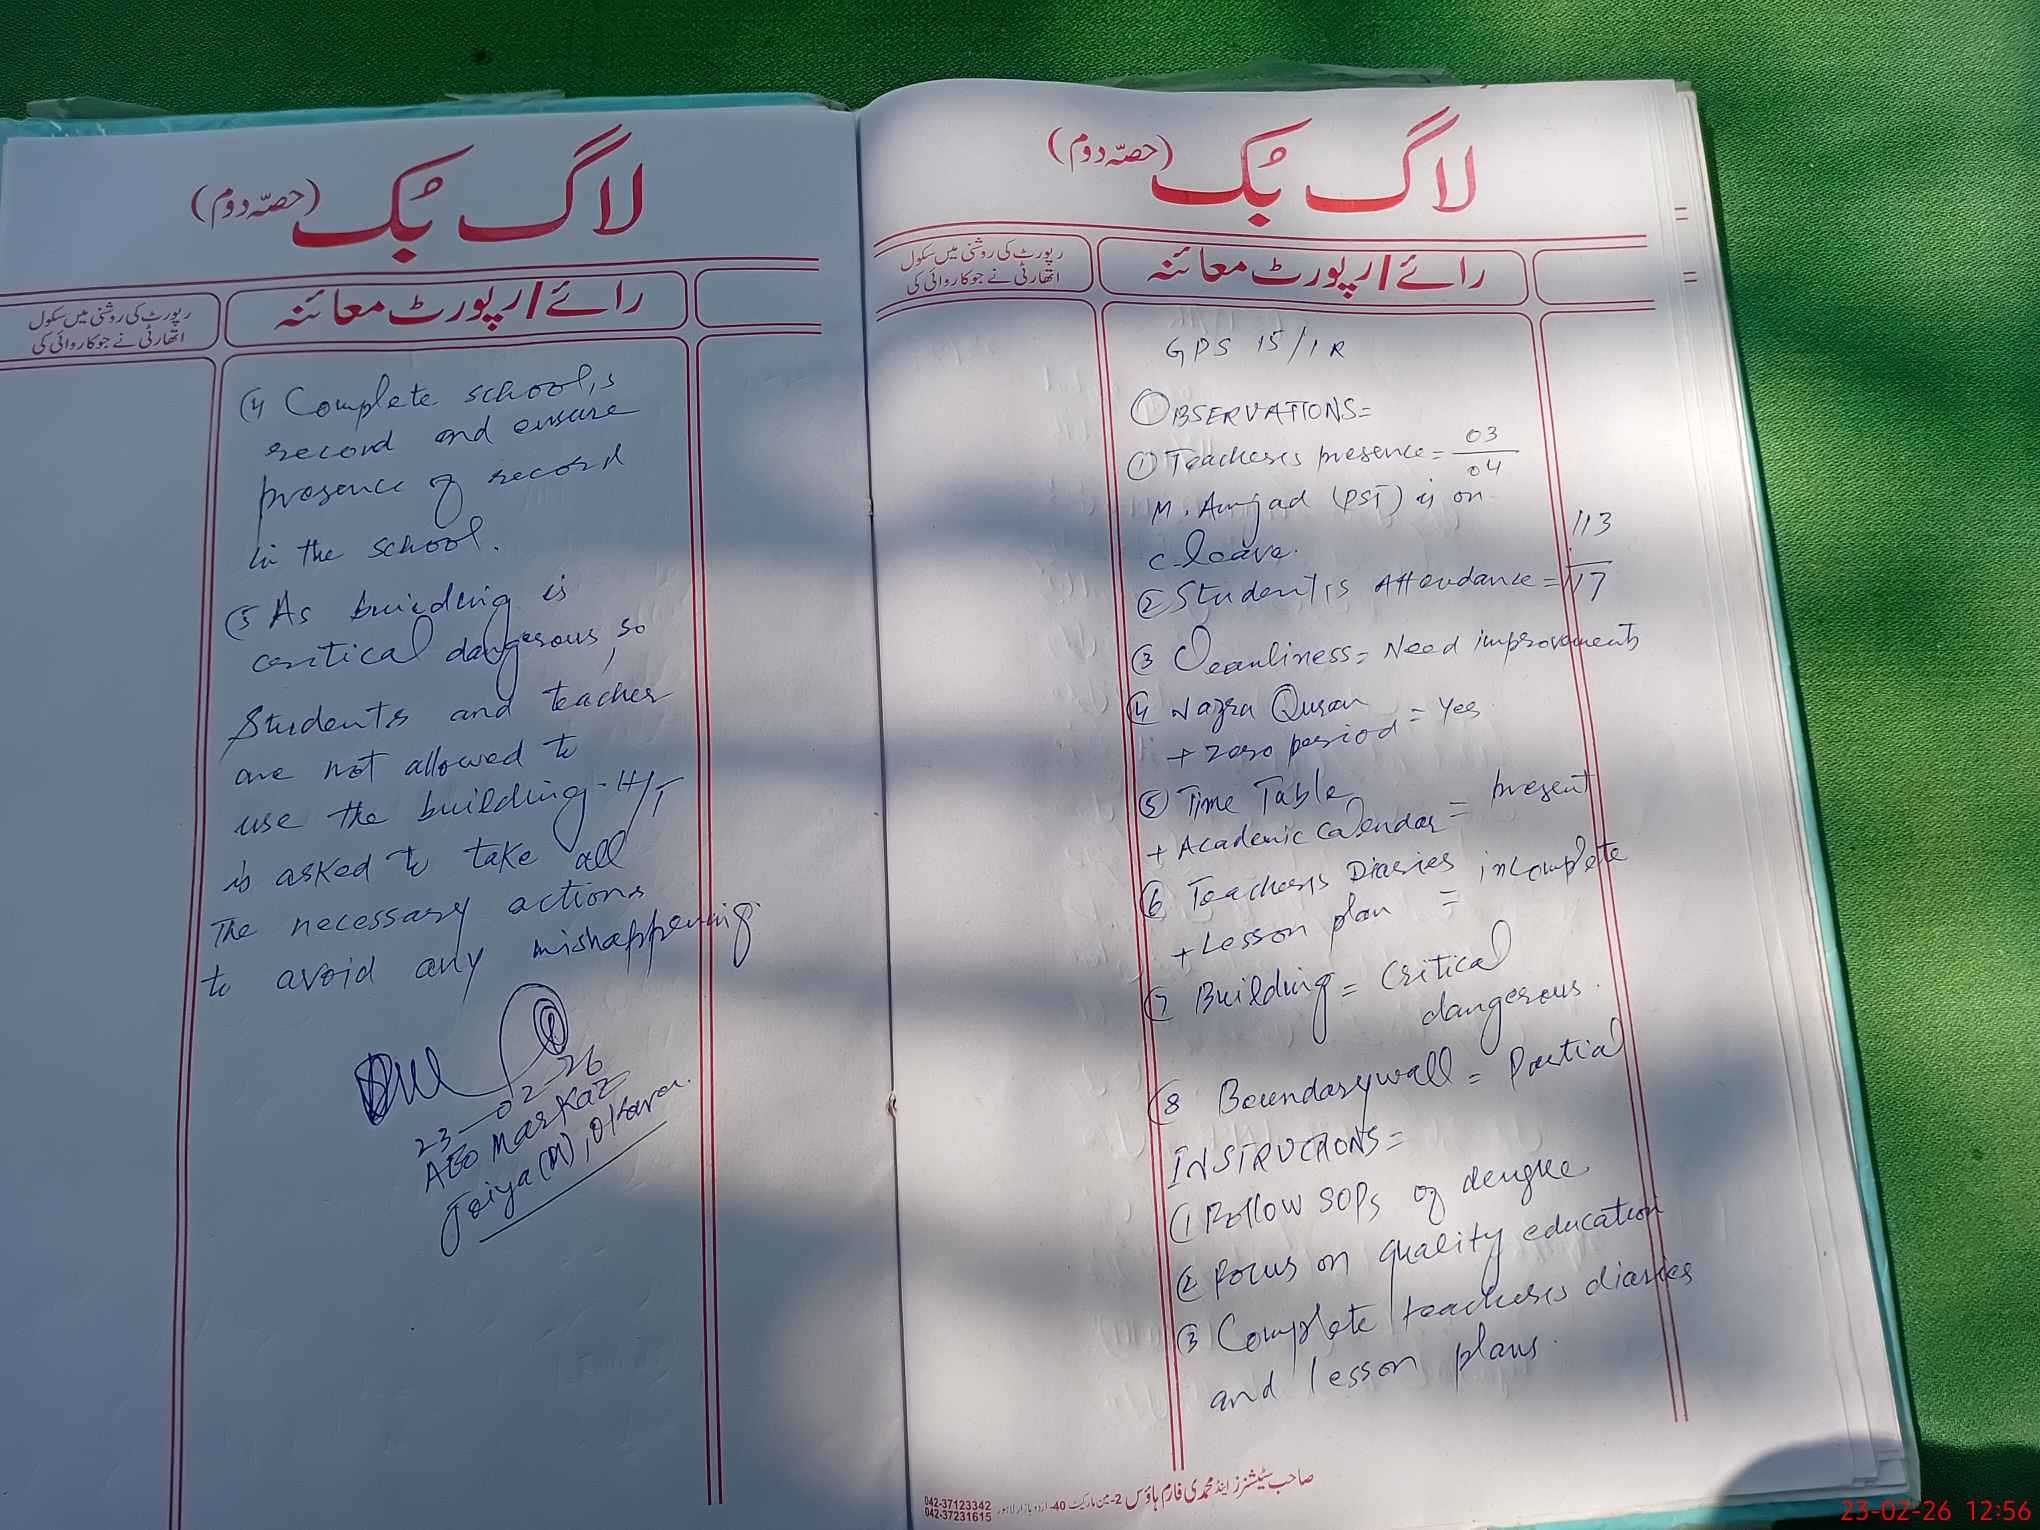 لاگ بُک (حصّہ دوم)
رپورٹ کی روشنی میں سکول
اتھارٹی نے جو کاروائی کی
رائے/رپورٹ معائنہ
GPS 15/1R
OBSERVATIONS=
① Teacher,s presence = 03/04
M. Amjad (PST) is on
c.leave.
② Student,s Attendance = 113/117
③ Cleanliness = Need improvement
④ Nazra Quran
+ zero period = Yes
⑤ Time Table
+ Academic Calendar = present
⑥ Teacher,s Diaries
+ Lesson plan = incomplete
⑦ Building = Critical
dangerous.
⑧ Boundarywall = Partial
INSTRUCTIONS=
① Follow SOPs of dengue
② Focus on quality education
③ Complete teacher,s diaries
and lesson plans.
صاحب سٹیشنرز اینڈ محمدی فارم ہاؤس 2-مین مارکیٹ 40-اردو بازار لاہور
042-37123342
042-37231615
لاگ بُک (حصّہ دوم)
رپورٹ کی روشنی میں سکول
اتھارٹی نے جو کاروائی کی
رائے/رپورٹ معائنہ
④ Complete school,s
record and ensure
presence of record
in the school.
⑤ As building is
critical dangerous, so
Students and teacher
are not allowed to
use the building. H/T
is asked to take all
The necessary actions
to avoid any mishappening.
23-02-26
AEO Markaz
Joiya(M), Okara.
23-02-26 12:56